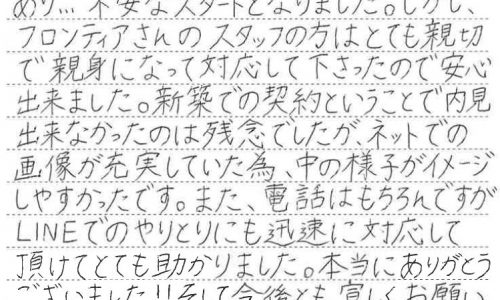 あり… 不安なスタートとなりました。しかし、
フロンティアさんのスタッフの方はとても親切
で親身になって対応して下さったので安心
出来ました。新築での契約ということで内見
出来なかったのは残念でしたが、ネットでの
画像が充実していた為、中の様子がイメージ
しやすかったです。また、電話はもちろんですが
LINEでのやりとりにも迅速に対応して
頂けてとても助かりました。本当にありがとう
ございました!!そして今後とも宜しくお願い